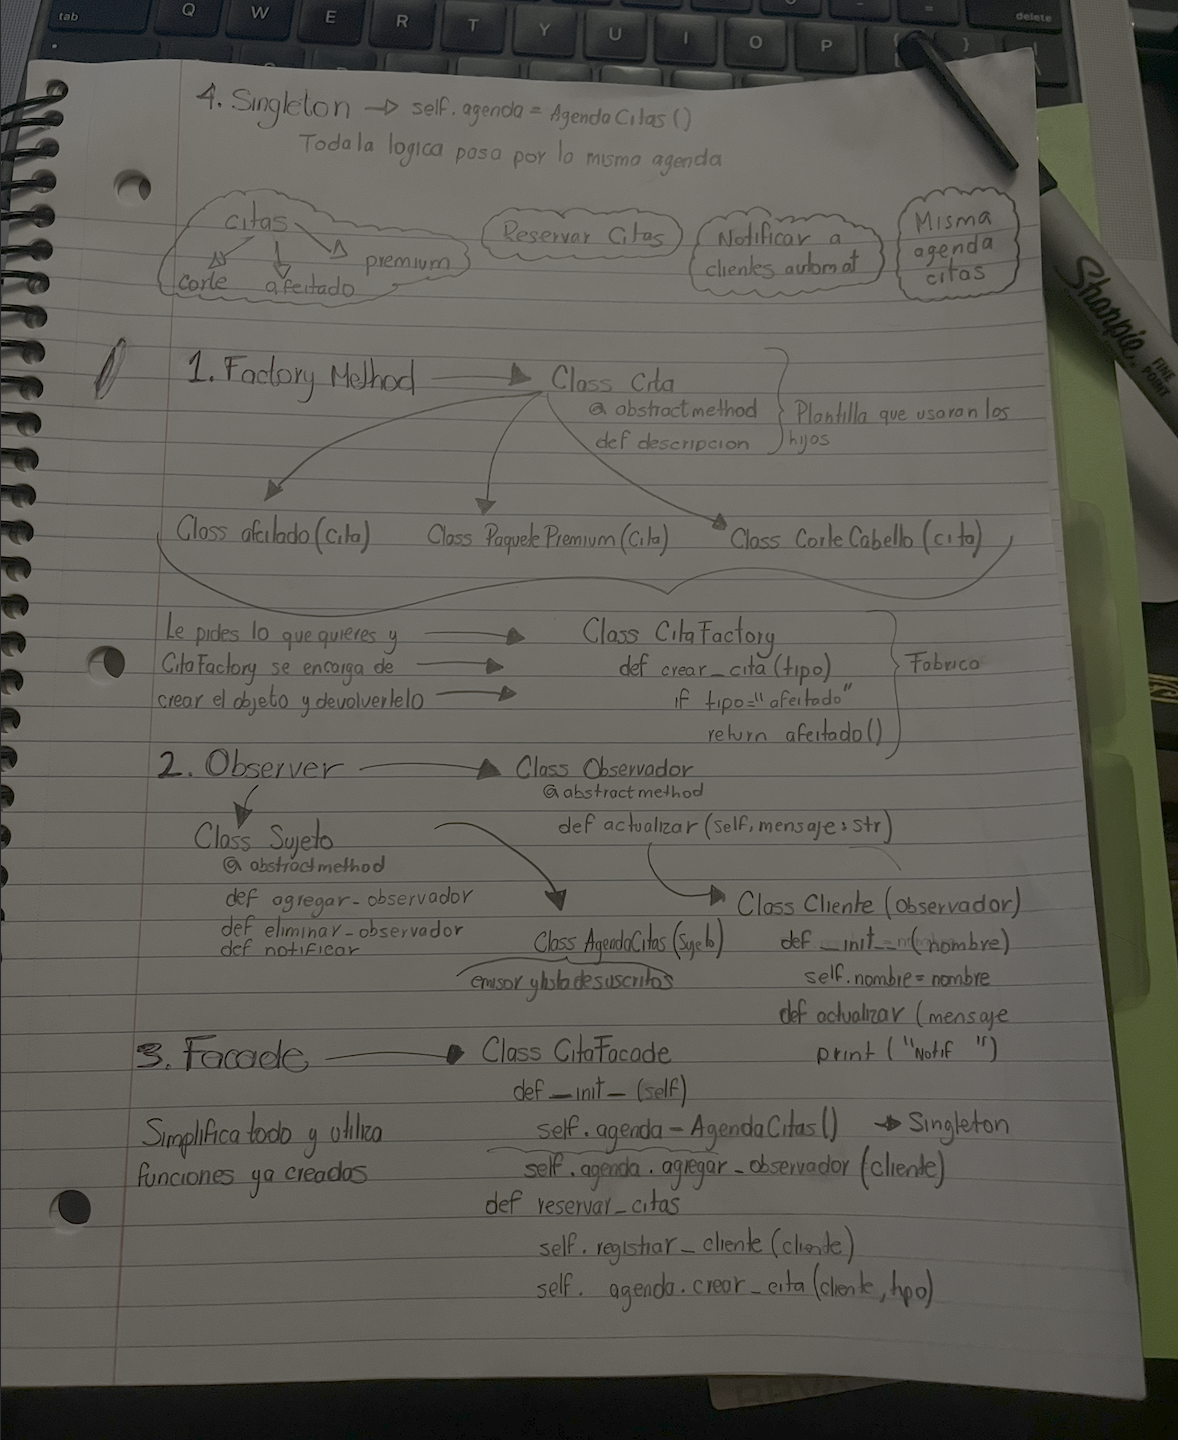 tab
Q W E R T Y U I O P { }
delete
4. Singleton → self.agenda = AgendaCitas()
Toda la logica pasa por la misma agenda
citas
corte afeitado premium
Reservar Citas
Notificar a
clientes automat
Misma
agenda
citas
Sharpie.
FINE
POINT
1. Factory Method → Class Cita
@ abstractmethod
def descripcion
Plantilla que usaran los
hijos
Class afeitado (Cita) Class Paquete Premium (Cita) Class Corte Cabello (cita)
Le pides lo que quieres y → Class CitaFactory
CitaFactory se encarga de → def crear_cita (tipo)
crear el objeto y devolvertelo → if tipo="afeitado"
return afeitado()
Fabrica
2. Observer → Class Observador
@ abstractmethod
def actualizar (self, mensaje: str)
Class Sujeto
@ abstractmethod
def agregar-observador
def eliminar-observador
def notificar
Class AgendaCitas (Sujeto)
emisor y lista de suscritos
Class Cliente (observador)
def __init__ (nombre)
self.nombre = nombre
def actualizar (mensaje
print ("Notif ")
3. Facade → Class CitaFacade
def _init_ (self)
Simplifica todo y utiliza
funciones ya creadas
self.agenda = AgendaCitas() → Singleton
self.agenda.agregar_observador (cliente)
def reservar_citas
self.registrar_cliente (cliente)
self. agenda.crear_cita (cliente, tipo)